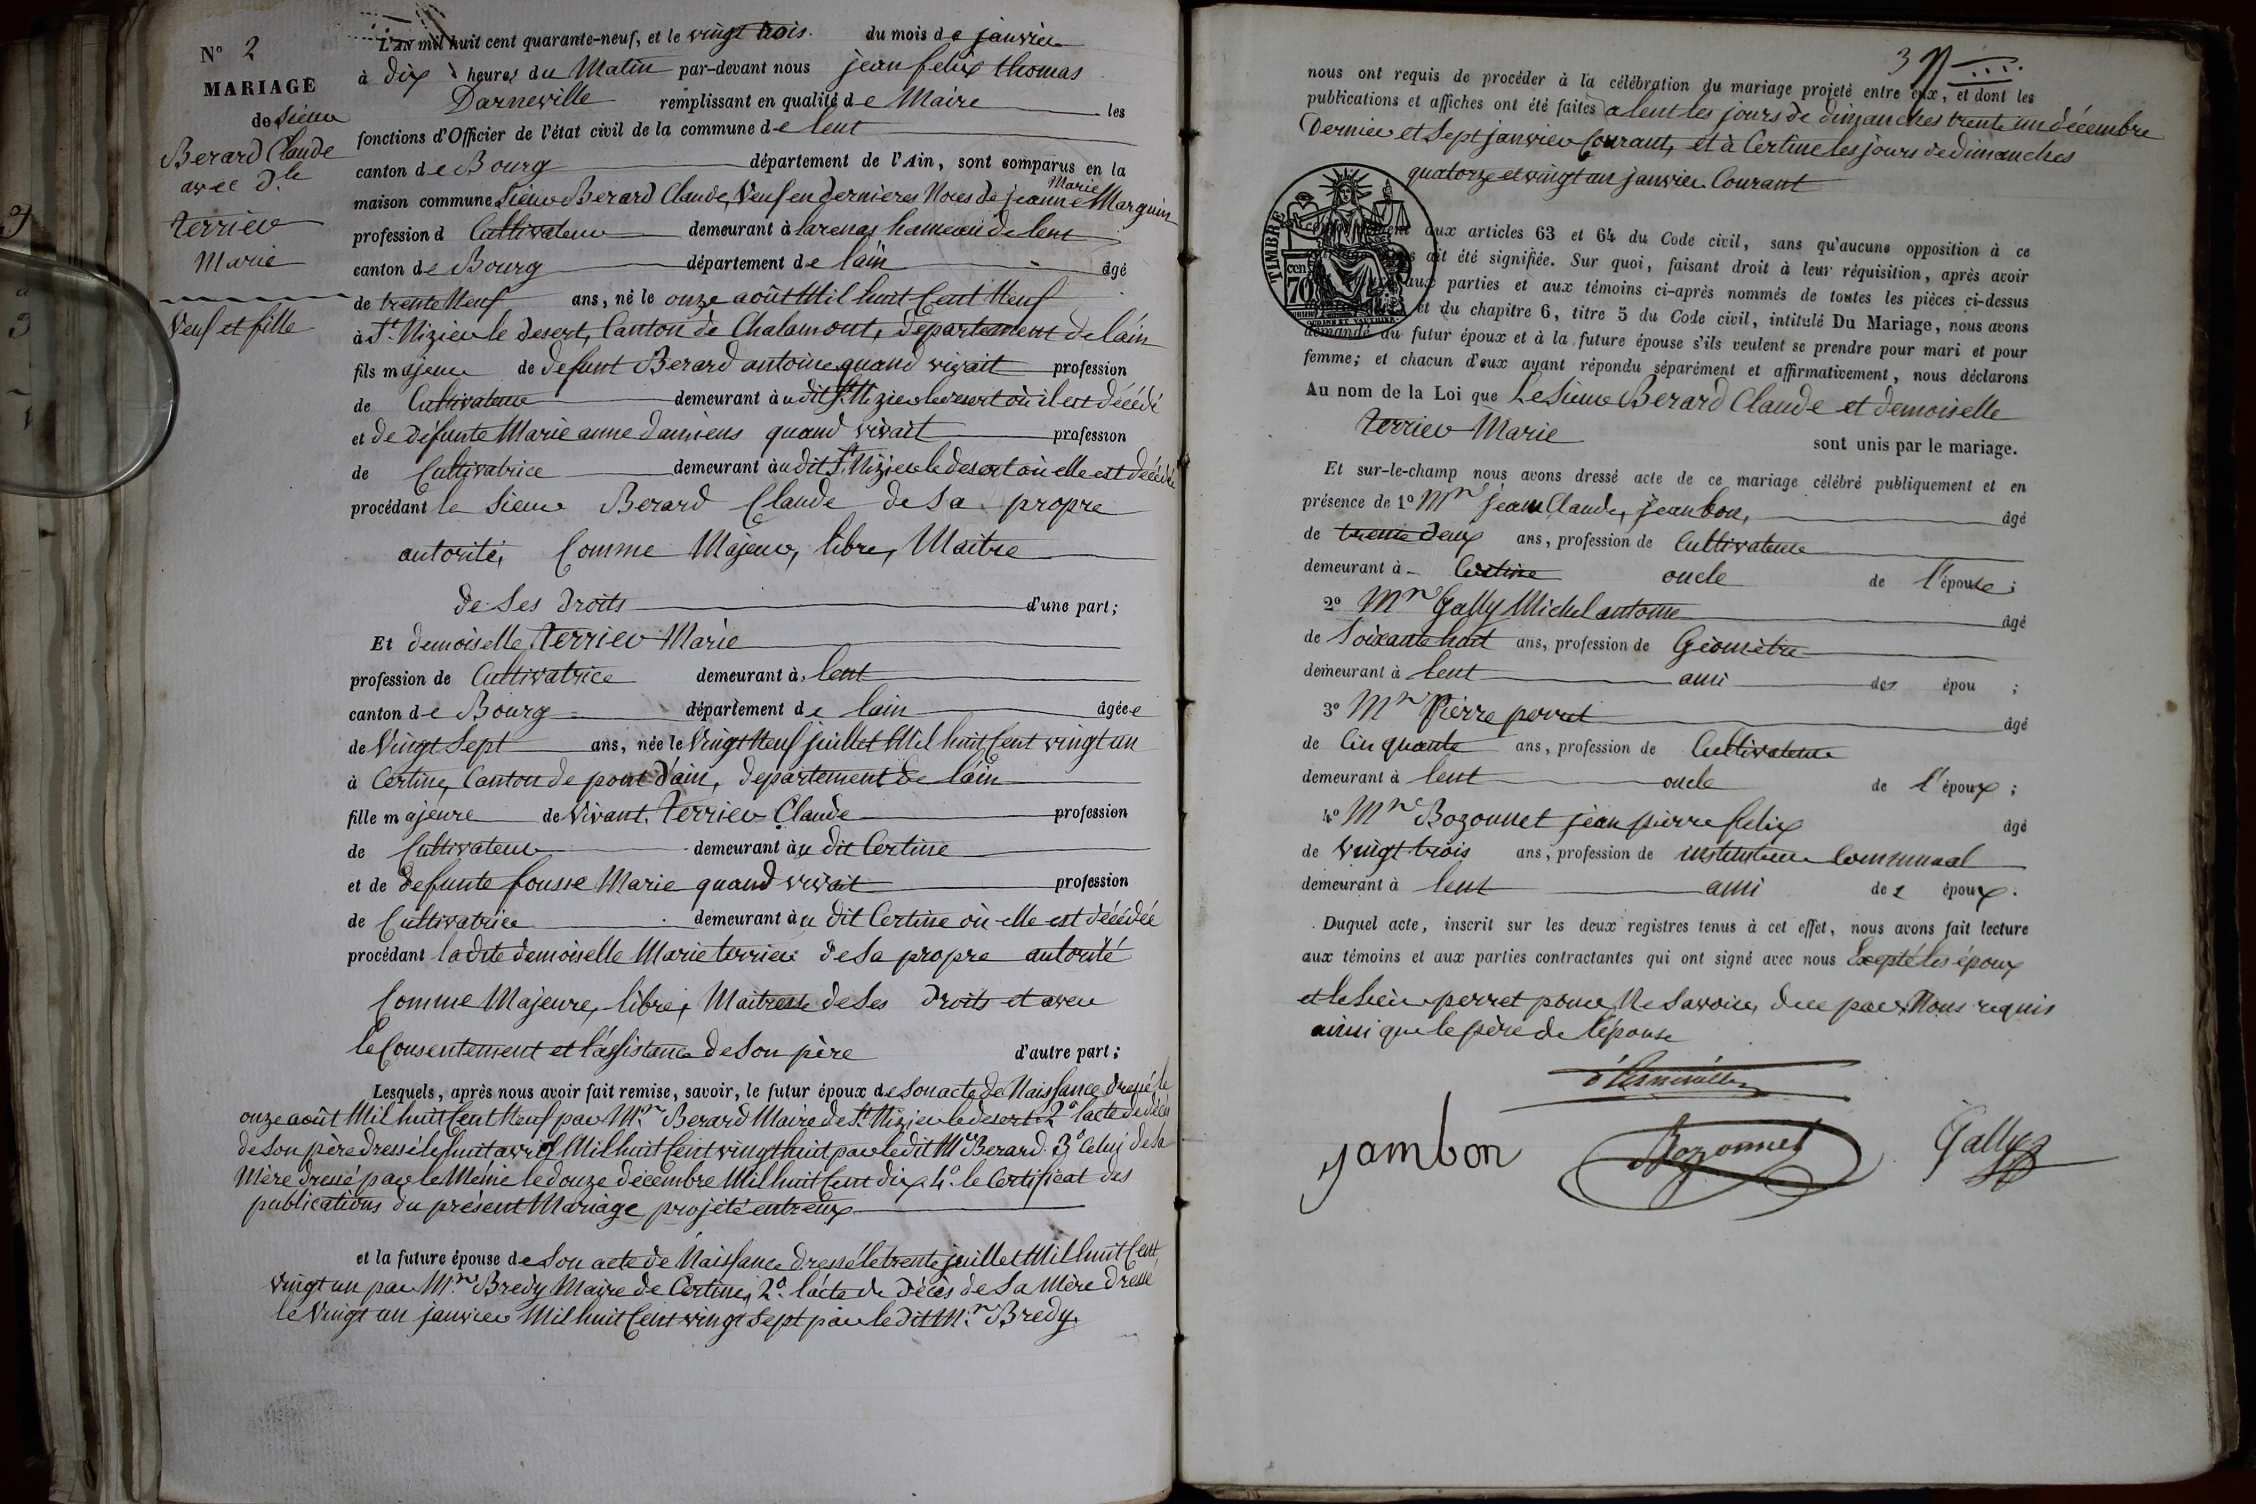 N° 2
MARIAGE
de Sieur
Berard Claude
avec d.lle
terrier
Marie
Veuf et fille
L'an mil huit cent quarante-neuf, et le vingt trois du mois de janvier
à dix heures du Matin par-devant nous jean felix thomas
Darneville remplissant en qualité de Maire les
fonctions d'Officier de l'état civil de la commune de lent
canton de Bourg département de l'Ain, sont comparus en la
maison commune Sieur Berard Claude, Veuf en dernieres Noces de jeanne Marie Marguin
profession d Cultivateur demeurant à larenas hameau de lent
canton de Bourg département de lain âgé
de trente Neuf ans, né le onze août Mil huit Cent Neuf
à St. Nizier le desert, Canton de Chalamont, département de lain
fils majeur de defunt Berard antoine quand vivait profession
de Cultivateur demeurant audit St. Nizier le desert où il est décédé
et de défunte Marie anne damiens quand vivait profession
de Cultivatrice demeurant au dit St. Nizier le desert où elle est décédée
procédant le Sieur Berard Claude de sa propre
autorité, Comme Majeur, libre, Maitre
de Ses droits d'une part;
Et demoiselle terrier Marie
profession de Cultivatrice demeurant à lent
canton de Bourg département de lain âgée
de Vingt Sept ans, née le Vingt Neuf juillet Mil huit Cent vingt un
à Certine, Canton de pont d'ain, departement de l'ain
fille majeure de Vivant terrier Claude profession
de Cultivateur demeurant au dit Certine
et de defunte fousse Marie quand vivait profession
de Cultivatrice demeurant au dit Certine où elle est décédée
procédant la dite demoiselle Marie terrier de sa propre autorité
Comme Majeure, libre, Maitresse de Ses droits et avec
le Consentement et l'assistance de Son père d'autre part;
Lesquels, après nous avoir fait remise, savoir, le futur époux de Son acte de Naissance dressé le
onze août Mil huit Cent Neuf par Mr. Berard Maire de St. Nizier le desert 2° l'acte de décès
de Son père dressé le huit avril Mil huit Cent vingt huit par le dit Mr Berard. 3° Celui de sa
Mère dressé par le Même le douze décembre Mil huit Cent dix. 4° le Certificat des
publications du présent Mariage projeté entr'eux
et la future épouse de Son acte de Naissance dressé le trente juillet Mil huit Cent
vingt un par Mr. Bredy Maire de Certine, 2° l'acte de décès de sa Mère dressé
le Vingt un janvier Mil huit Cent vingt Sept par le dit Mr. Bredy.
3
nous ont requis de procéder à la célébration du mariage projeté entre eux, et dont les
publications et affiches ont été faites à lent les jours de dimanches trente un décembre
Dernier et Sept janvier Courant, et à Certine les jours de dimanches
quatorze et vingt un janvier Courant
TIMBRE
70
cen
aux articles 63 et 64 du Code civil, sans qu'aucune opposition à ce
ait été signifiée. Sur quoi, faisant droit à leur réquisition, après avoir
aux parties et aux témoins ci-après nommés de toutes les pièces ci-dessus
et du chapitre 6, titre 5 du Code civil, intitulé Du Mariage, nous avons
demandé au futur époux et à la future épouse s'ils veulent se prendre pour mari et pour
femme; et chacun d'eux ayant répondu séparément et affirmativement, nous déclarons
Au nom de la Loi que Le Sieur Berard Claude et demoiselle
terrier Marie sont unis par le mariage.
Et sur-le-champ nous avons dressé acte de ce mariage célébré publiquement et en
présence de 1° Mr Jean Claude, jeanbon, âgé
de trente deux ans, profession de Cultivateur
demeurant à Certine oncle de l'épouse;
2° Mr Gally Michel antoine âgé
de Soixante huit ans, profession de Géomètre
demeurant à lent ami des épou ;
3° Mr Pierre perret âgé
de Cinquante ans, profession de Cultivateur
demeurant à lent oncle de l'époux;
4° Mr Bozonnet jean pierre felix âgé
de vingt trois ans, profession de instituteur Communal
demeurant à lent ami des époux.
Duquel acte, inscrit sur les deux registres tenus à cet effet, nous avons fait lecture
aux témoins et aux parties contractantes qui ont signé avec nous Excepté les époux
et le Sieur perret pour Ne Savoir, de ce par Nous requis
ainsi que le père de l'épouse
jambon Bozonnet Gally